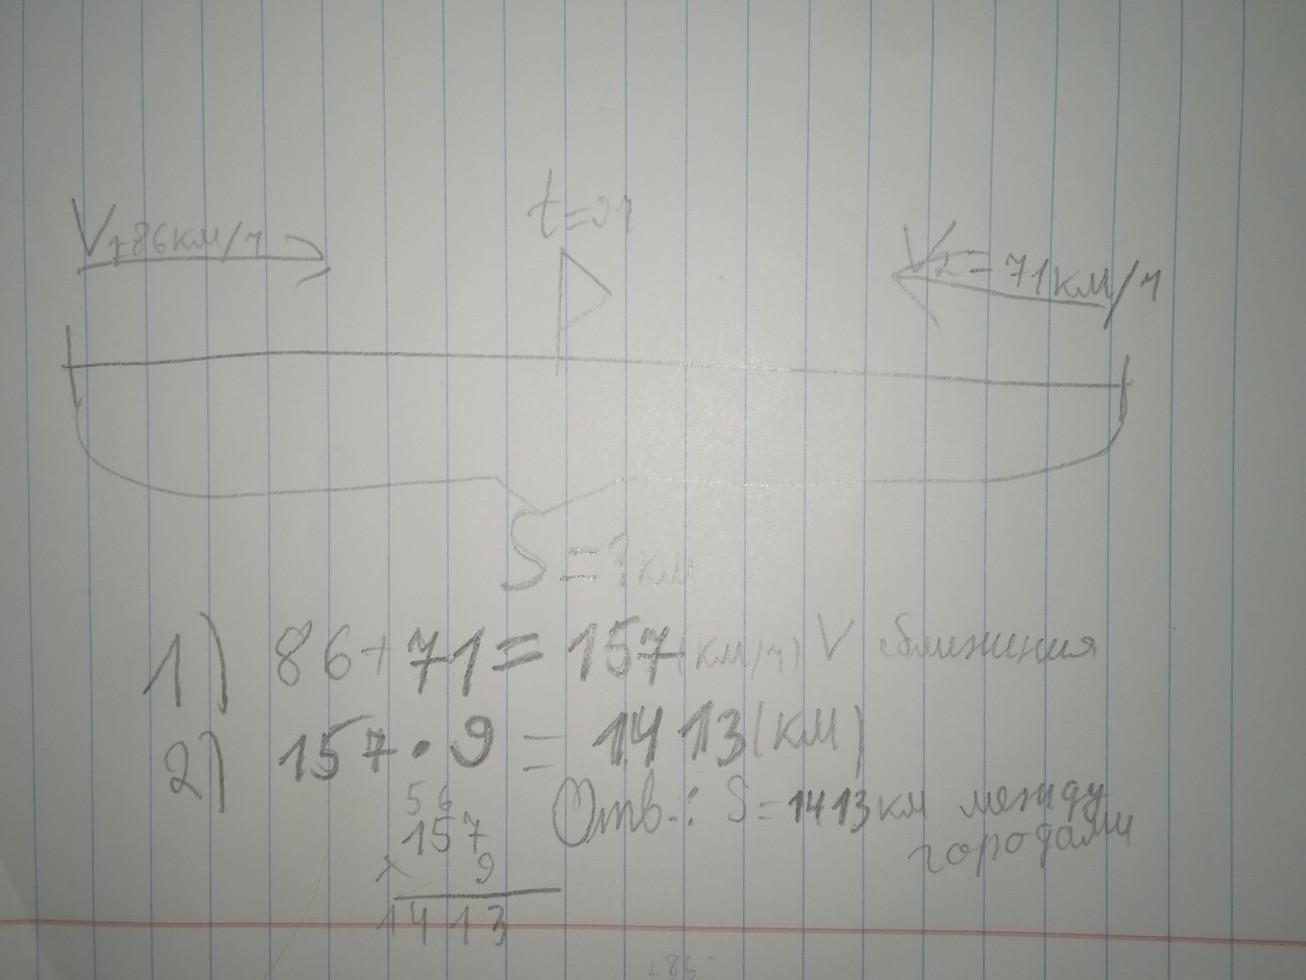 t=9ч
V1=86км/ч
V2=71км/ч
S=?км
1) 86+71=157(км/ч) V сближения
2) 157·9=1413(км)
56
157
× 9
1413
Отв.: S=1413км между
городами